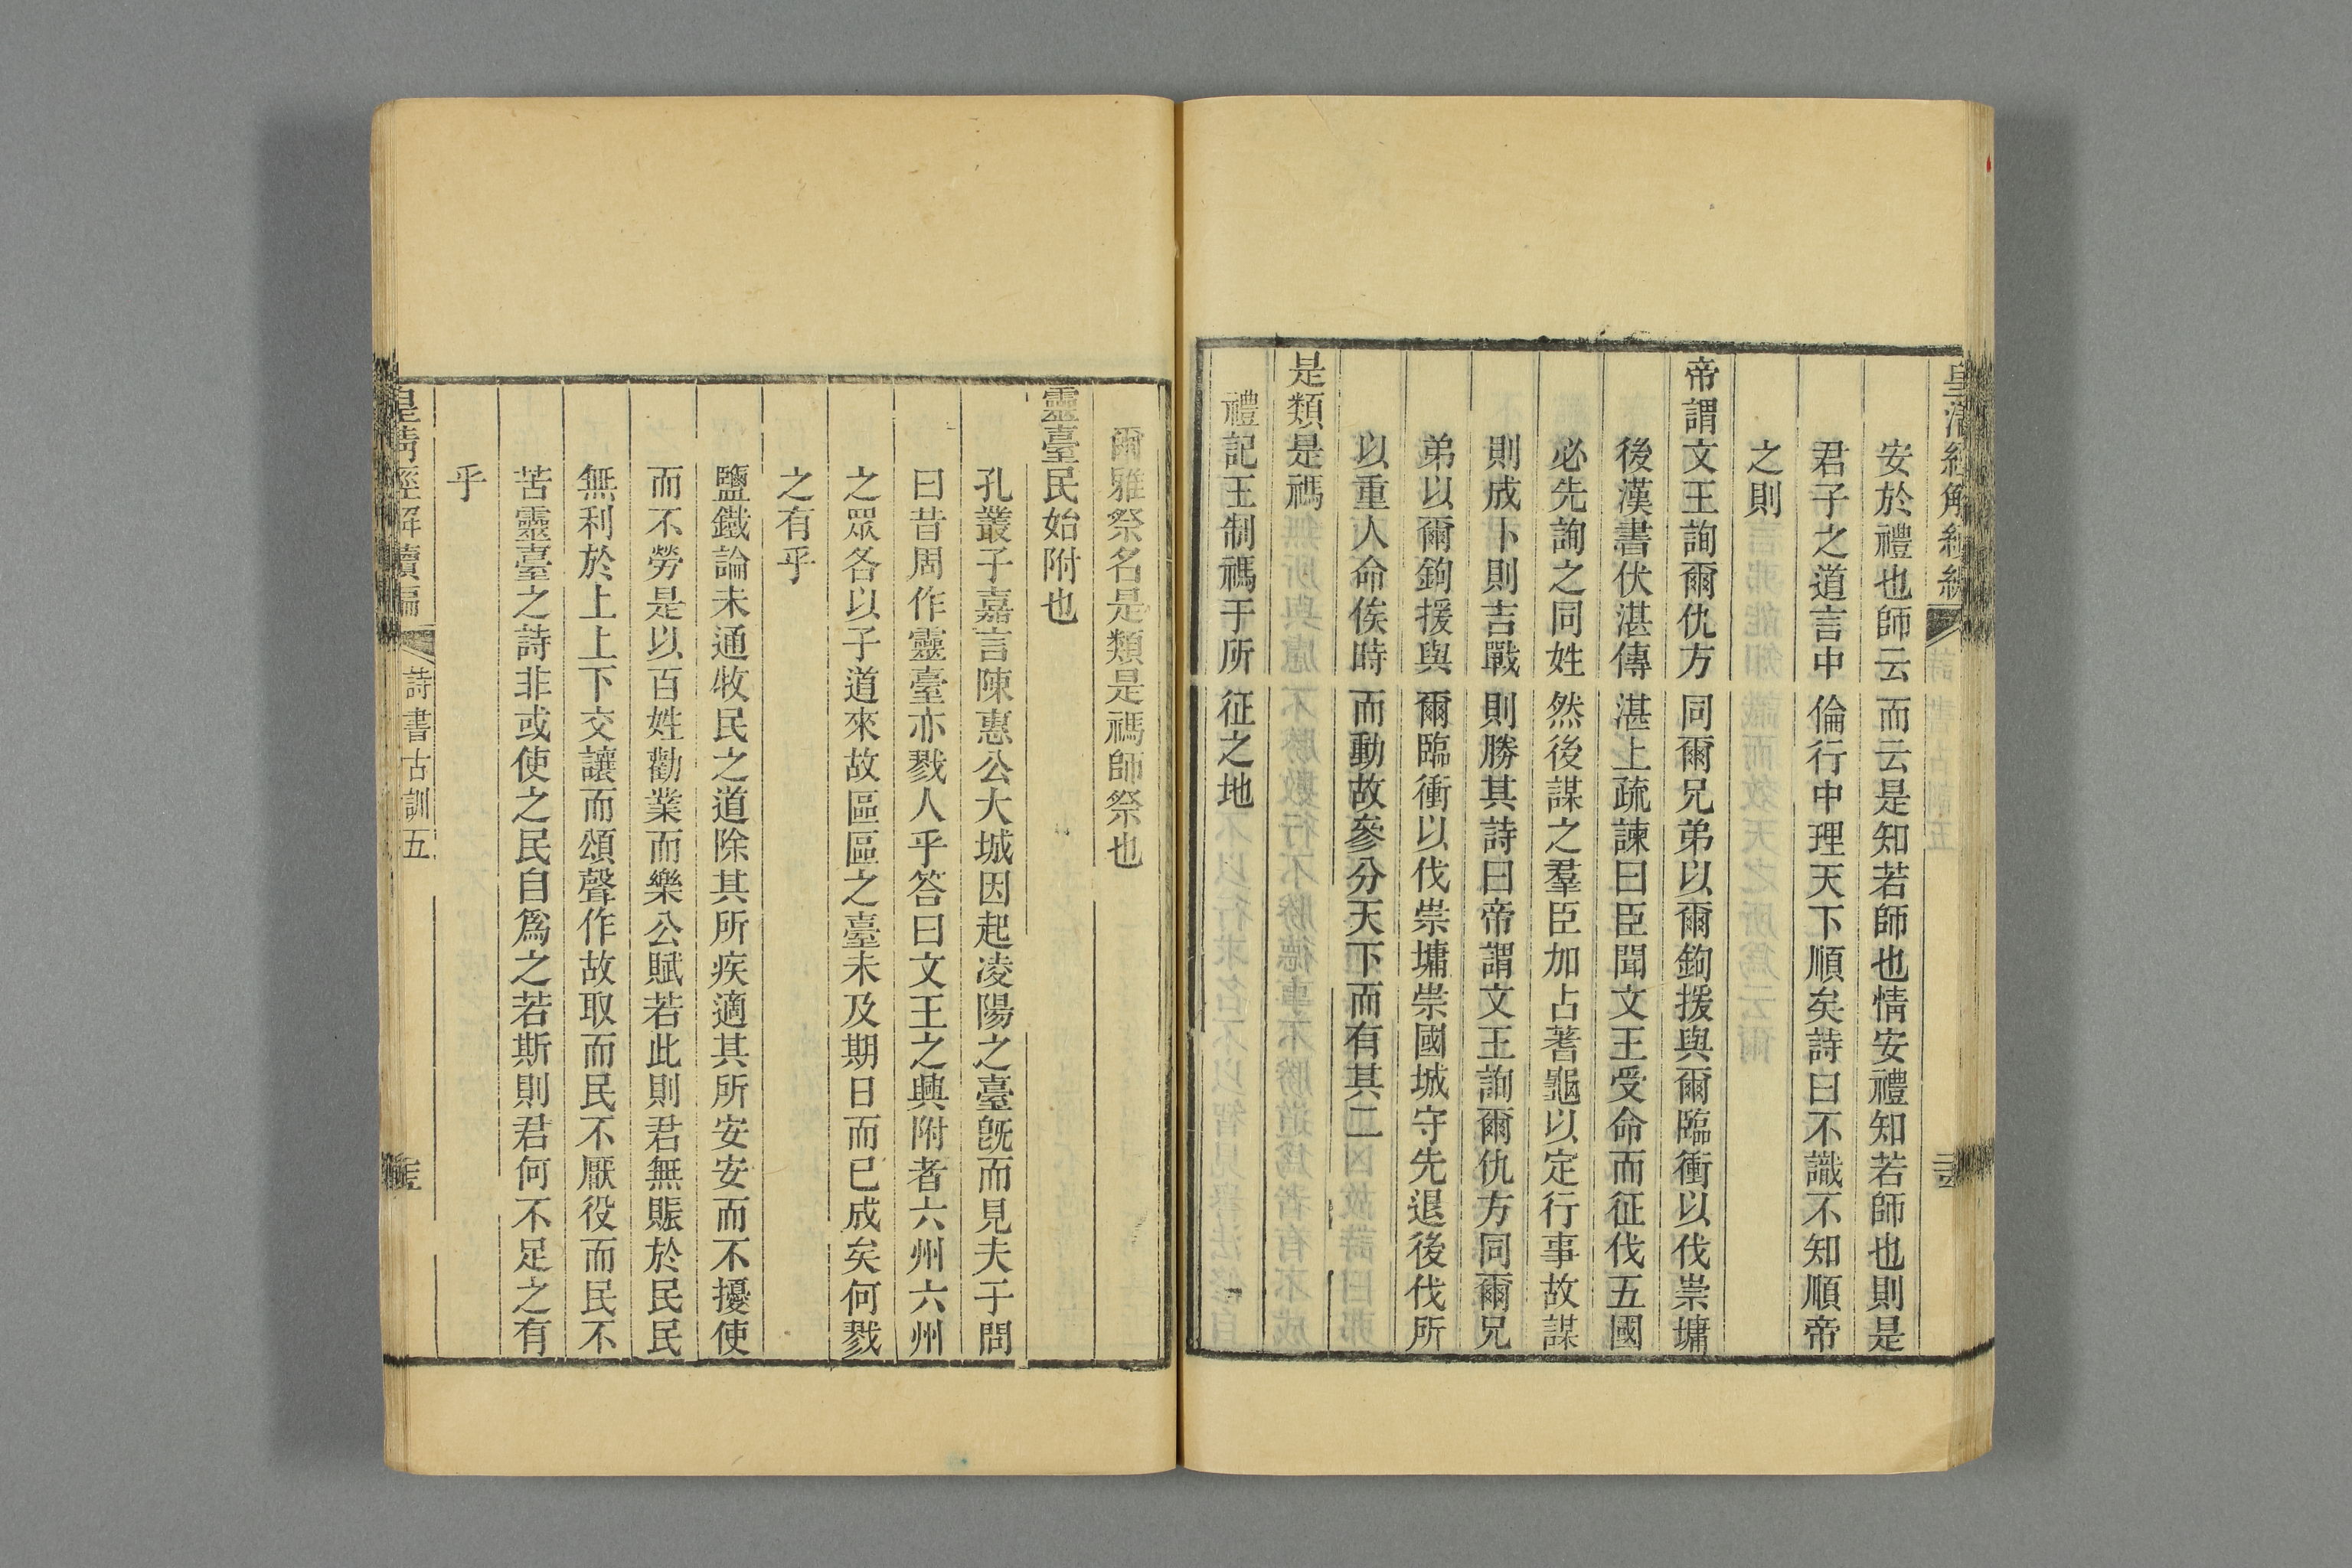 安於禮也師云而云是知若師也情安禮知若師也則是
君子之道言中倫行中理天下順矣詩曰不識不知順帝
之則
帝謂文王詢爾仇方同爾兄弟以爾鉤援與爾臨衝以伐崇墉
後漢書伏湛傳湛上疏諫曰臣聞文王受命而征伐五國
必先詢之同姓然後謀之羣臣加占蓍龜以定行事故謀
則成卜則吉戰則勝其詩曰帝謂文王詢爾仇方同爾兄
弟以爾鉤援與爾臨衝以伐崇墉崇國城守先退後伐所
以重人命俟時而動故參分天下而有其二
是類是禡
禮記王制禡于所征之地
爾雅祭名是類是禡師祭也
靈臺民始附也
孔叢子嘉言陳惠公大城因起凌陽之臺旣而見夫子問
曰昔周作靈臺亦戮人乎答曰文王之興附者六州六州
之眾各以子道來故區區之臺未及期日而已成矣何戮
之有乎
鹽鐵論未通牧民之道除其所疾適其所安安而不擾使
而不勞是以百姓勸業而樂公賦若此則君無賑於民民
無利於上上下交讓而頌聲作故取而民不厭役而民不
苦靈臺之詩非或使之民自爲之若斯則君何不足之有
乎
皇清經解續編
詩書古訓五